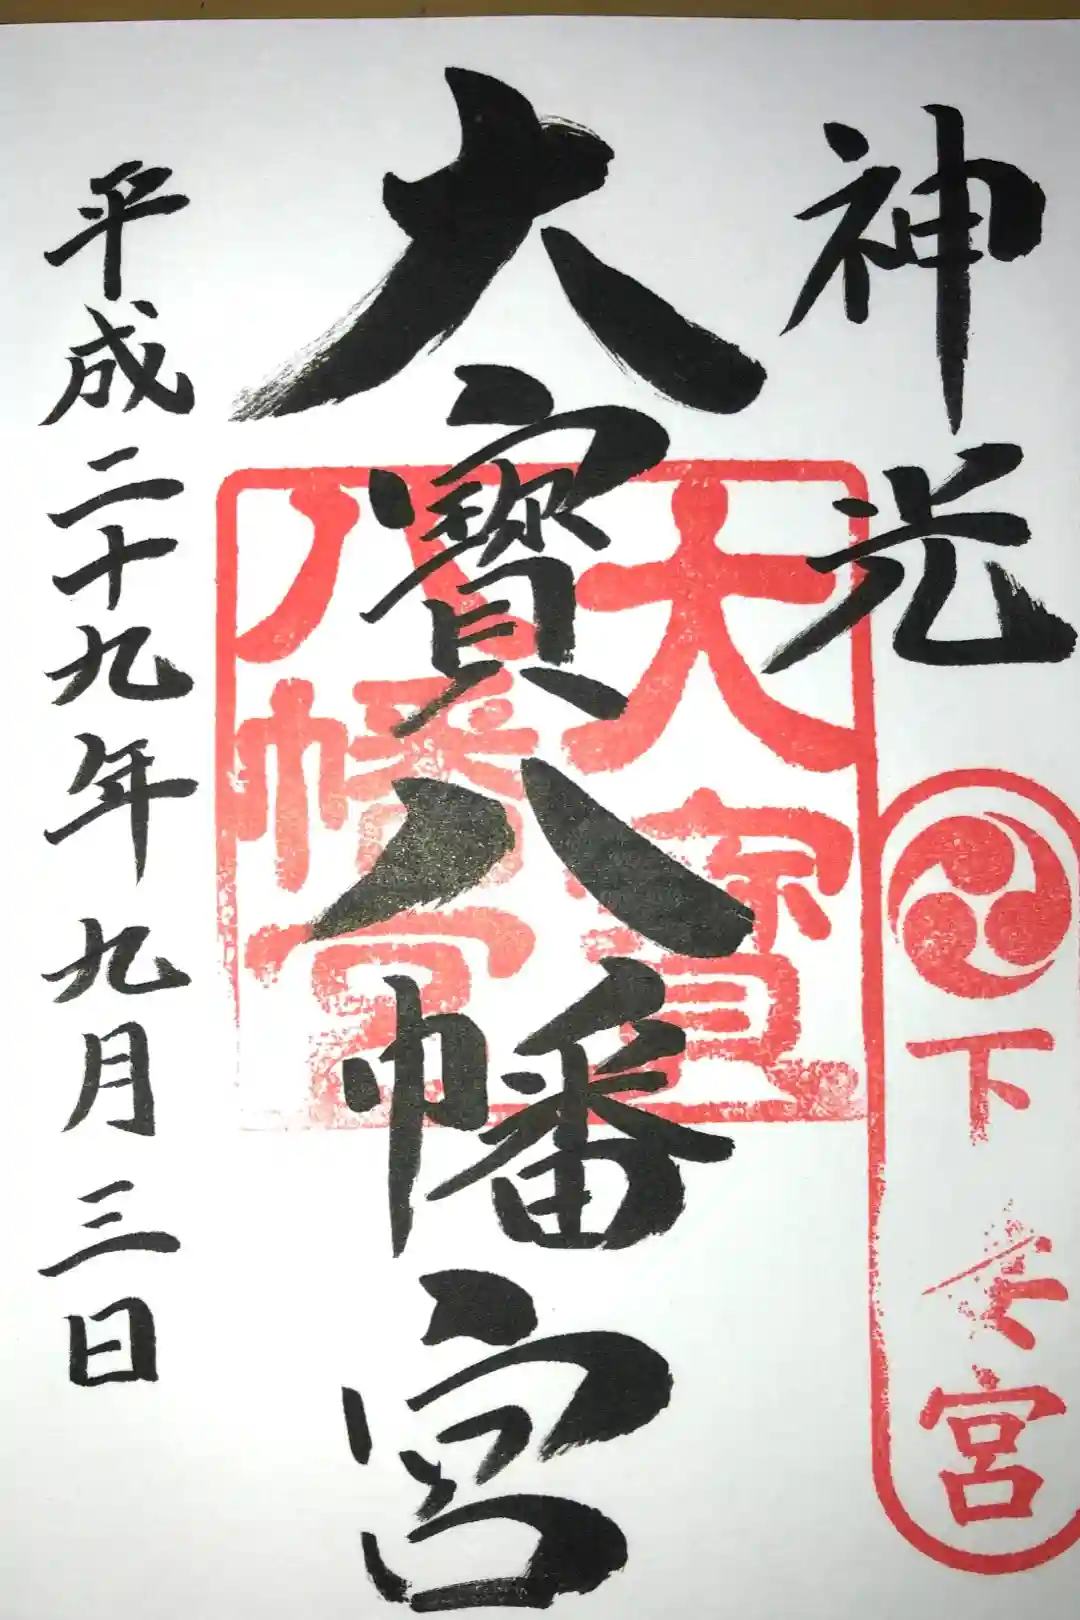 神光
下妻宮
大寳八幡宮
大寳
八幡宮
平成二十九年九月三日